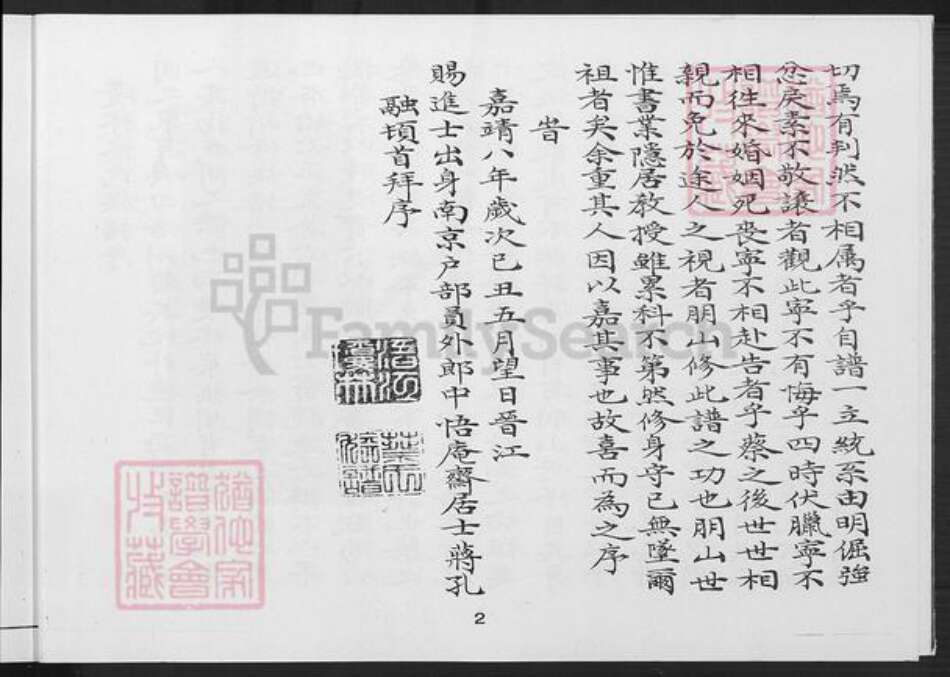 切焉有判然不相属者乎自譜一立統系由明倔強
忿戾素不敬讓者觀此寧不有悔乎四時伏臘寧不
相徃來婚姻死喪寧不相赴告者乎蔡之後世世相
親而免於途人之視者朋山修此譜之功也朋山世
惟書業隱居教授雖累科不第然修身守已無墜爾
祖者矣余重其人因以嘉其事也故喜而為之序
峕
嘉靖八年歲次已丑五月望日晉江
賜進士出身南京户部員外郎中悟庵齋居士蔣孔
融頃首拜序
FamilySearch
譜學會
收藏
2